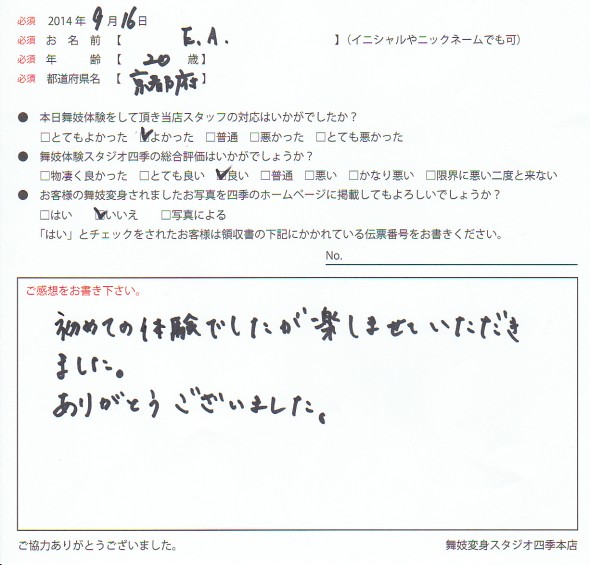 必須 2014年 9月16日
必須 お名前【 E.A. 】(イニシャルやニックネームでも可)
必須 年齢【 20 歳】
必須 都道府県名【 京都府 】
● 本日舞妓体験をして頂き当店スタッフの対応はいかがでしたか？
□とてもよかった ☑よかった □普通 □悪かった □とても悪かった
● 舞妓体験スタジオ四季の総合評価はいかがでしょうか？
□物凄く良かった □とても良い ☑良い □普通 □悪い □かなり悪い □限界に悪い二度と来ない
● お客様の舞妓変身されましたお写真を四季のホームページに掲載してもよろしいでしょうか？
□はい ☑いいえ □写真による
「はい」とチェックをされたお客様は領収書の下記にかかれている伝票番号をお書きください。
No.
ご感想をお書き下さい。
初めての体験でしたが楽しませていただき
ました。
ありがとうございました。
ご協力ありがとうございました。 舞妓変身スタジオ四季本店